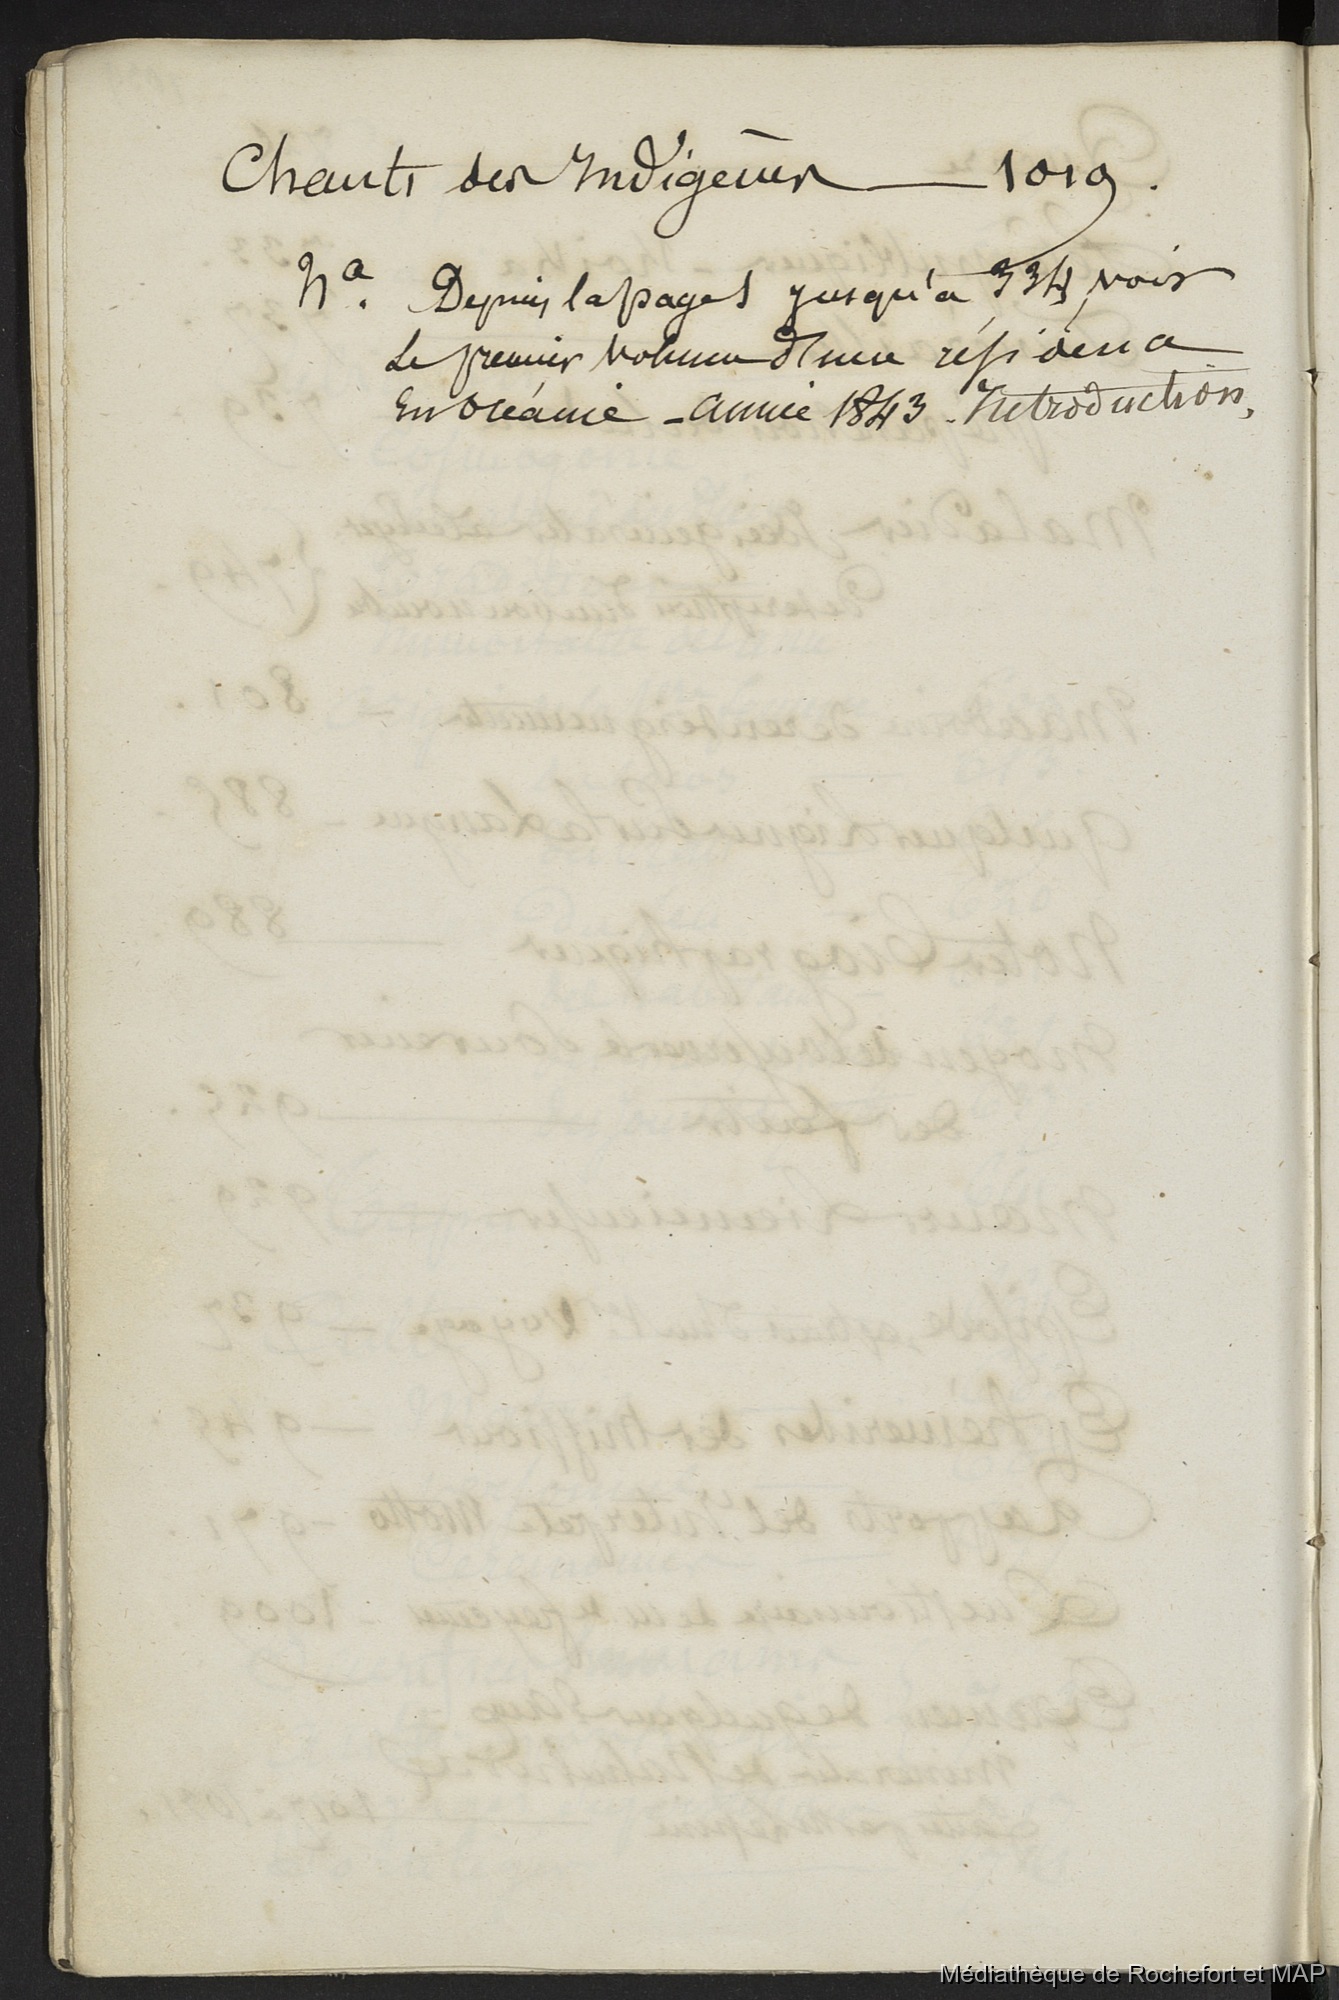 Chants des Indigènes — 1019.
Nª. Depuis la page 1 jusqu'à 334, voir
le premier volume d'une résidence
En Océanie - année 1843. Introduction.
Médiathèque de Rochefort et MAP